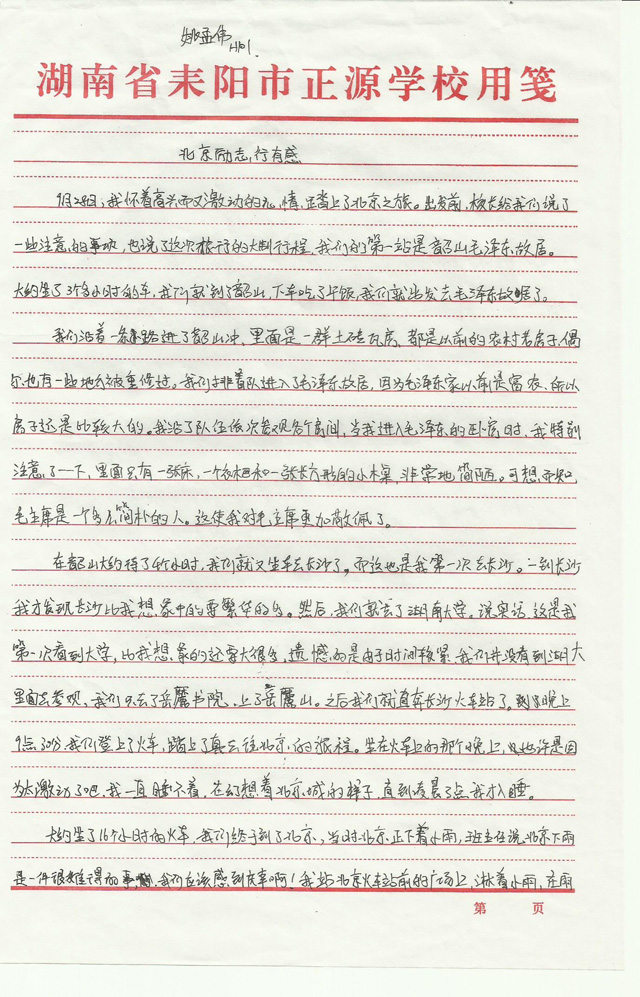 姚孟伟
湖南省耒阳市正源学校用笺
北京励志行有感
9月28日,我怀着高兴而又激动的心情,踏上了北京之旅。出发前,校长给我们说了
一些注意的事项,也说了这次旅行的大制行程,我们的第一站是韶山毛泽东故居。
大约坐了3个多小时的车,我们就到了韶山,下车吃了午饭,我们就出发去毛泽东故居了。
我们沿着一条路进了韶山冲,里面是一群土砖瓦房,都是以前的农村老房子,偶
尔也有一些地方被重修过。我们排着队进入了毛泽东故居,因为毛泽东家以前是富农,所以
房子还是比较大的。我沿了队伍依次参观各个房间,当我进入毛泽东的卧房时,我特别
注意了一下,里面只有一张床,一个衣柜和一张长方形的小木桌,非常地简陋。可想而知,
毛主席是一个多么简朴的人。这使我对毛主席更加敬佩了。
在韶山大约待了4个小时,我们就又坐车去长沙了。而这也是我第一次去长沙。一到长沙
我才发现长沙比我想象中的要繁华的多。然后,我们就去了湖南大学。说实话,这是我
第一次看到大学,比我想象的还要大很多,遗憾的是由于时间较紧,我们并没有到湖大
里面去参观,我们只去了岳麓书院,上了岳麓山。之后我们就直奔长沙火车站了。到了晚上
9点30分,我们登上了火车,踏上了真正去往北京的旅程。坐在火车上的那个晚上,也许是因
为太激动了吧,我一直睡不着,在幻想着北京城的样子,直到凌晨3点我才入睡。
大约坐了16个小时的火车,我们终于到了北京,当时北京正下着小雨,班主任说北京下雨
是一件很难得的事啊,我们应该感到庆幸啊!我站北京火车站前的广场上,淋着小雨,在雨
第 页